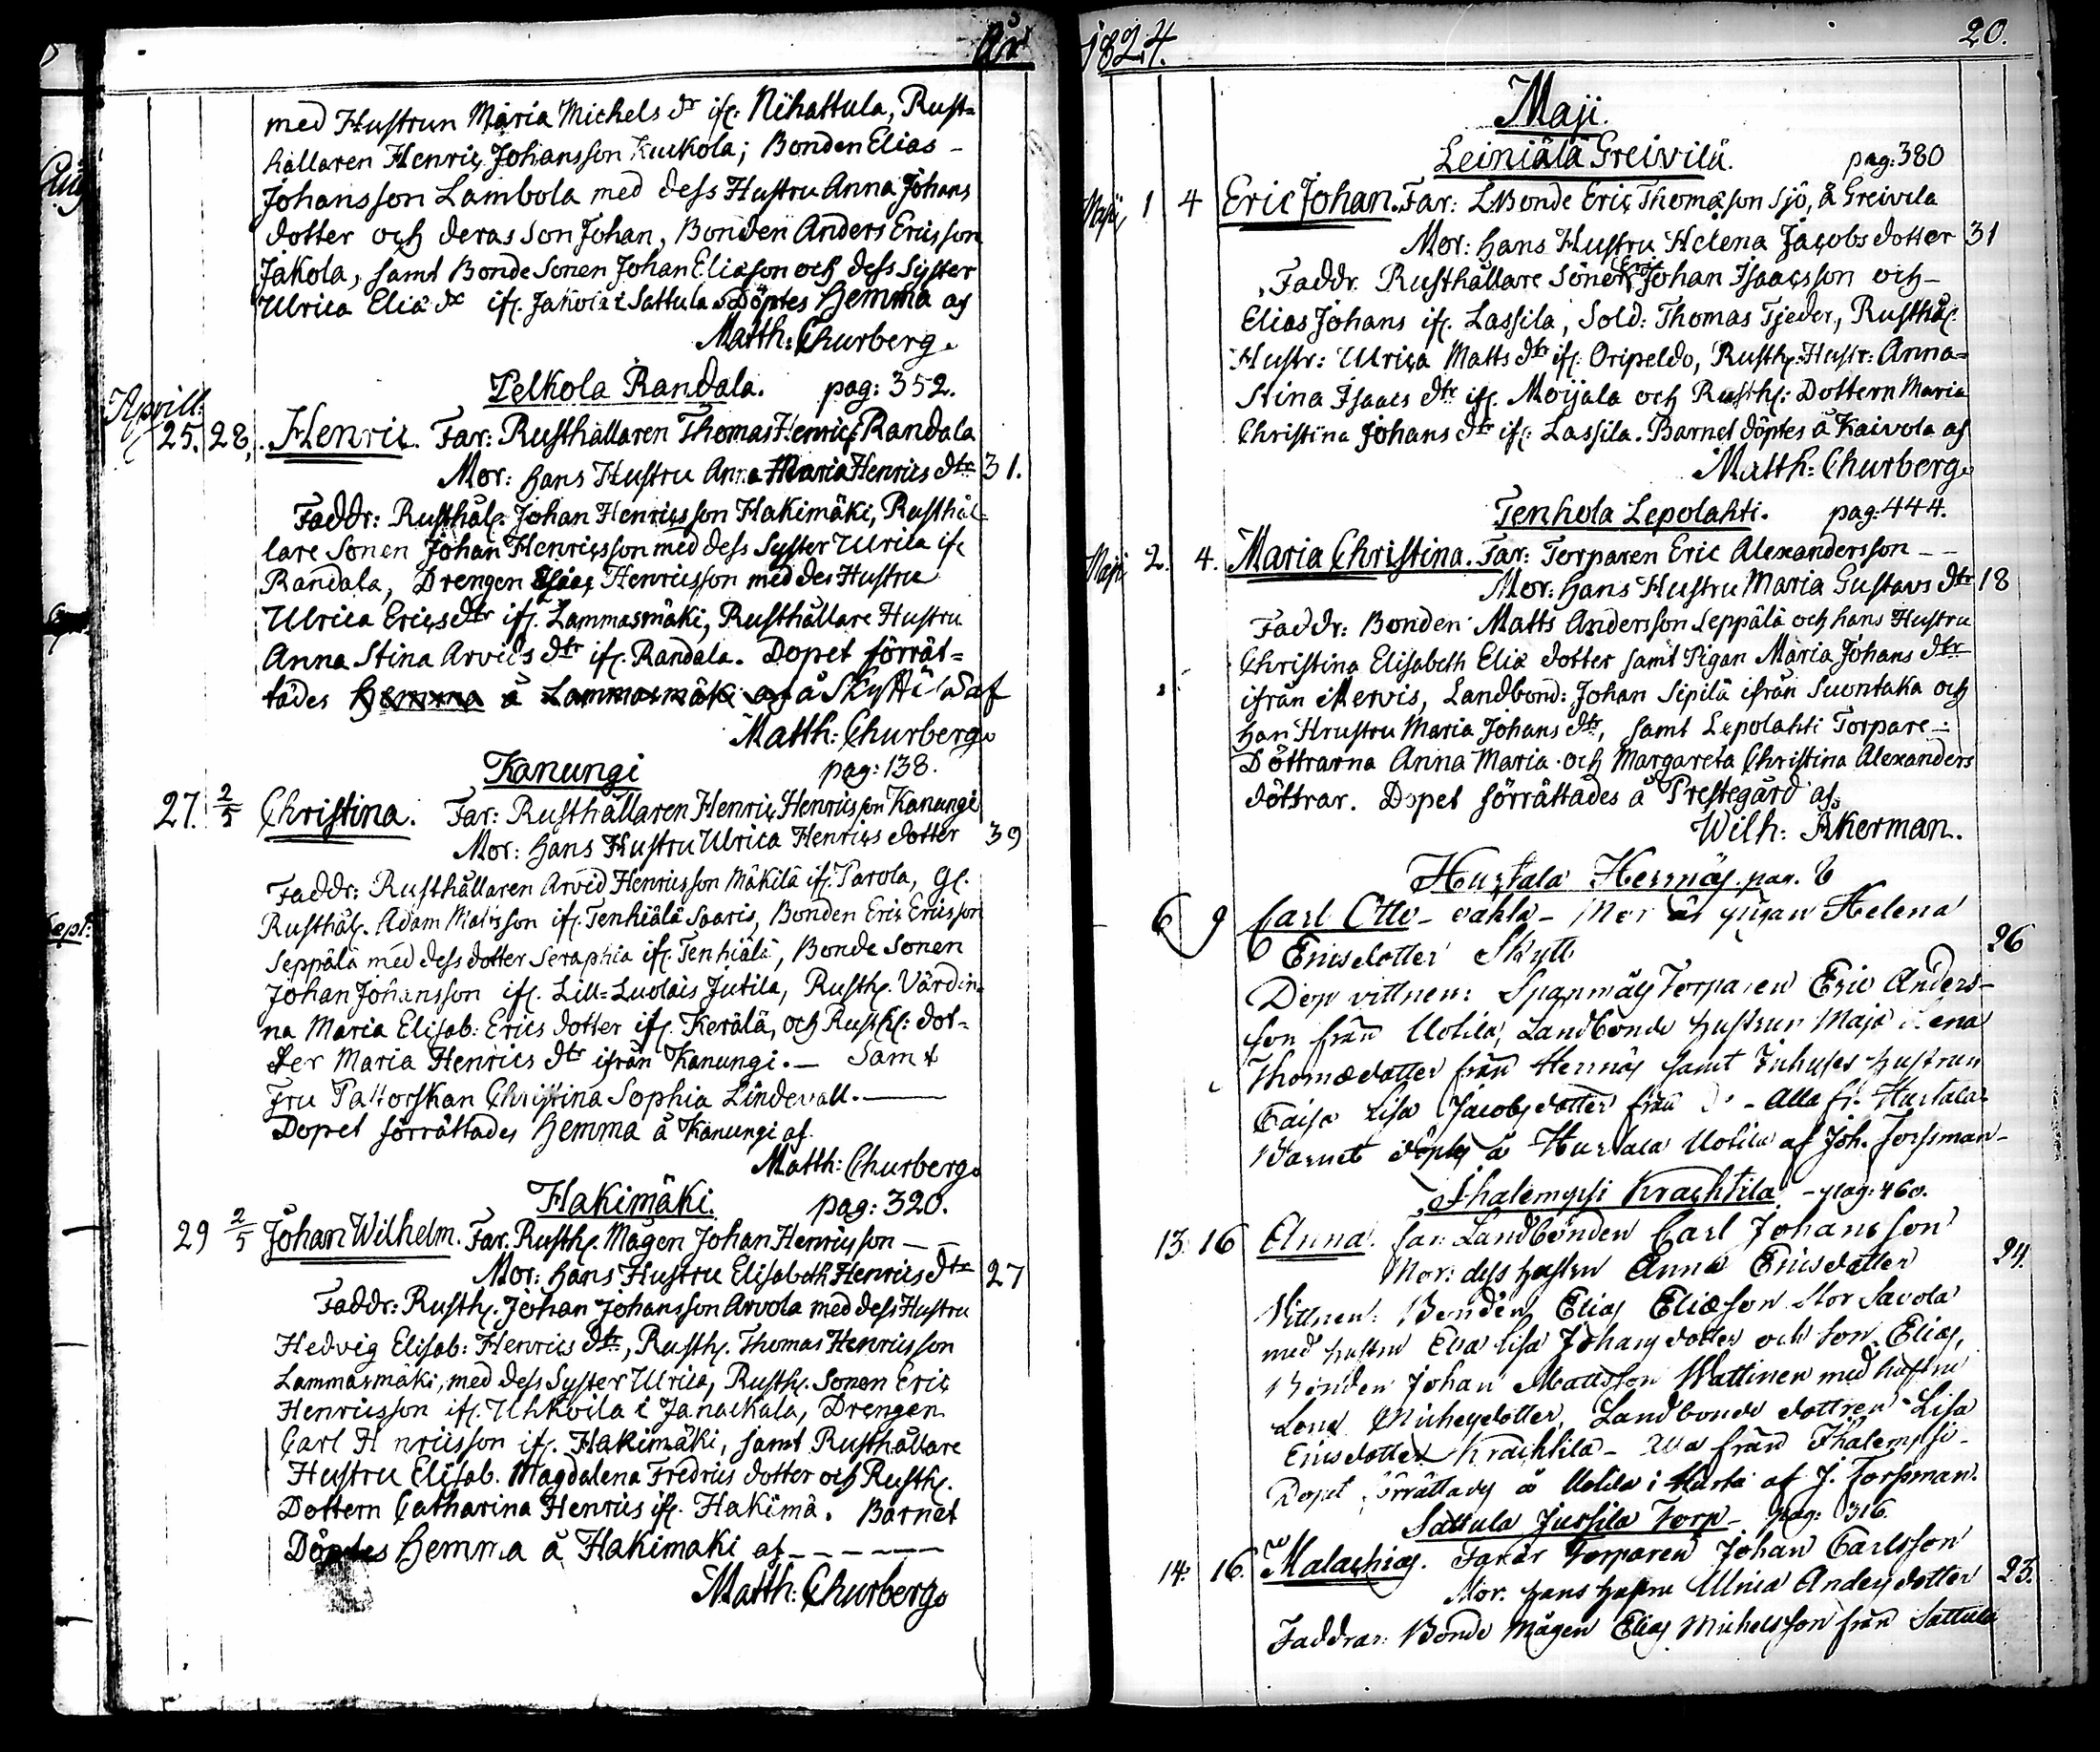 År
med Hustrun Maria Michels dr ifr. Nihattula, Rust=
hållaren Henric Johansson Kuckola; Bonden Elias –
Johansson Lambola med dess Hustru Anna Johans
dotter och deras Son Johan, Bonden Anders Ericsson
Jakola, samt Bonde Sonen Johan Eliason och dess Syster
Ulrica Eliæ dr ifr. Jakola i Sattula. Döptes hemma af
Matth: Churberg.
Pelkola Randala. pag: 352.
Aprill:
25. 28. Henric. Far: Rusthållaren Thomas Henrics. Randala
Mor: hans Hustru Anna Maria Henrics dtr 31.
Faddr: Rusthål. Johan Henricsson Hakimäki, Rusthål
lare Sonen Johan Henricsson med dess Syster Ulrica ifr
Randala, Drengen Henricsson med des Hustru
Ulrica Erics dtr ifr. Lammasmäki, Rusthållare Hustru
Anna Stina Arvids dtr ifr. Randala. Dopet förrät=
tades hemma å Lammasmäki af å Skyttälä af
Matth: Churberg.
Kanungi pag: 138.
27. 2/5 Christina. Far: Rusthållaren Henric Henricsson Kanungi
Mor: hans Hustru Ulrica Henrics dotter 39
Faddr: Rusthållaren Arvid Henricsson Mäkilä ifr. Parola, Gl.
Rusthål. Adam Matsson ifr. Tenhiälä Saaris, Bonden Eric Ericsson
Seppälä med dess dotter Seraphia ifr. Tenhiälä, Bonde Sonen
Johan Johansson ifr. Lill=Luolais Jutila, Rusth. Värdin=
na Maria Elisab: Erics dotter ifr. Kerälä, och Rusth: dot=
ter Maria Henrics dtr ifrån Kanungi. – Samt
Fru Pastorskan Christina Sophia Lindevall. —
Dopet förrättades hemma å Kanungi af
Matth: Churberg.
Hakimäki. pag: 320.
29 2/5 Johan Wilhelm. Far. Rusth. Mågen Johan Henricsson – –
Mor: hans Hustru Elisabeth Henrics dtr 27
Faddr: Rusth. Johan Johansson Arvola med dess Hustru
Hedvig Elisab: Henrics dtr, Rusth. Thomas Henricsson
Lammasmäki, med dess Syster Ulrica, Rusth. Sonen Eric
Henricsson ifr. Uhkoila i Janackala, Drengen
Carl H nricsson ifr. Hakimäki, samt Rusthållare
Hustru Elisab. Magdalena Fredrics dotter och Rusth.
Dottern Catharina Henrics ifr. Hakimä. Barnet
Döptes hemma å Hakimaki af – – – – –
Matth: Churberg.
1824. 20.
Maji.
Leiniälä Greivilä. pag: 380
Maji 1 4 Eric Johan. Far: L.Bonde Eric Thomason Sjö, å Greivila
Mor: hans Hustru Helena Jacobs dotter 31
Faddr. Rusthållare Söner Johan Isaacsson och –
Elias Johans ifr. Lassila, Sold: Thomas Tjeder, Rusthål.
Hustr: Ulrica Matts dtr ifr. Oripeldo, Rusth. Hustr: Anna=
Stina Isaacs dtr ifr. Moijala och Rusth: Dottern Maria
Christina Johans dtr ifr: Lassila. Barnet döptes å Kaivola af
Matth: Churberg.
Tenhola Lepolahti. pag: 444.
Maji 2. 4. Maria Christina. Far: Torparen Eric Alexandersson – –
Mor: hans Hustru Maria Gustavs dtr 18
Faddr: Bonden Matts Andersson Seppälä och hans Hustru
Christina Elisabeth Eliæ dotter samt Pigan Maria Johans dtr
ifrån Mervis, Landbond: Johan Sipilä ifrån Suontaka och
han Hrustru Maria Johans dtr, samt Lepolahti Torpare –
Döttrarna Anna Maria och Margareta Christina Alexanders
döttrar. Dopet förrättades å Prestegård af.
Wilh: Åkerman.
Hurtala Hernäs pag. 8
6 9 Carl Otto – oäkta – Mor är pigan Helena
Ericsdotter Skytt 26
Dop vittnen: Spanmäs Torparen Eric Anders–
son från Uotila, Landbonde hustrun Maja ena
Thomædotter från Hernäs samt Inhyses hustrun
Caisa Lisa Jacobsdotter från – Alla fr. Hurtala
Barnet döptes å Hurtala Uotila af Joh. Forssman –
Ihalempsi Krachtila – pag: 460.
13. 16 Anna. far: Landbonden Carl Johansson
Mor: dess hustru Anna Ericsdotter 24.
Vittnen: Bonden Elias Eliæson Stor Savola
med hustru Eva Lisa Johansdotter och Son Elias,
Bonden Johan Mattsson Wattinen med hustru
Lena Michelsdotter, Landbonde dottren Lisa
Ericsdotter Krachtila – Alla från Ihalempsi –
Dopet förrättades å Uotila i Hurta af J. Forssman.
Sattula Jussila Torp – pag: 316.
14. 16. Malachias. Far är Torparen Johan Carlsson
Mor. hans hustru Ulrica Andersdotter 23.
Faddrar: Bonde Mågen Elias Michelsson från Sattula